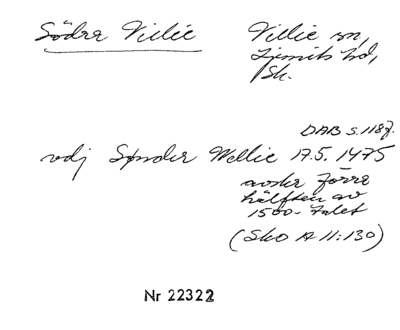 Södra Villie Villie sn,
Ljunits hd,
Sk.
DAB s. 118f.
vdj Synder Wellie 17.5. 1475
avskr förra
hälften av
1500-talet
(Sko A 11:130)
Nr 22322